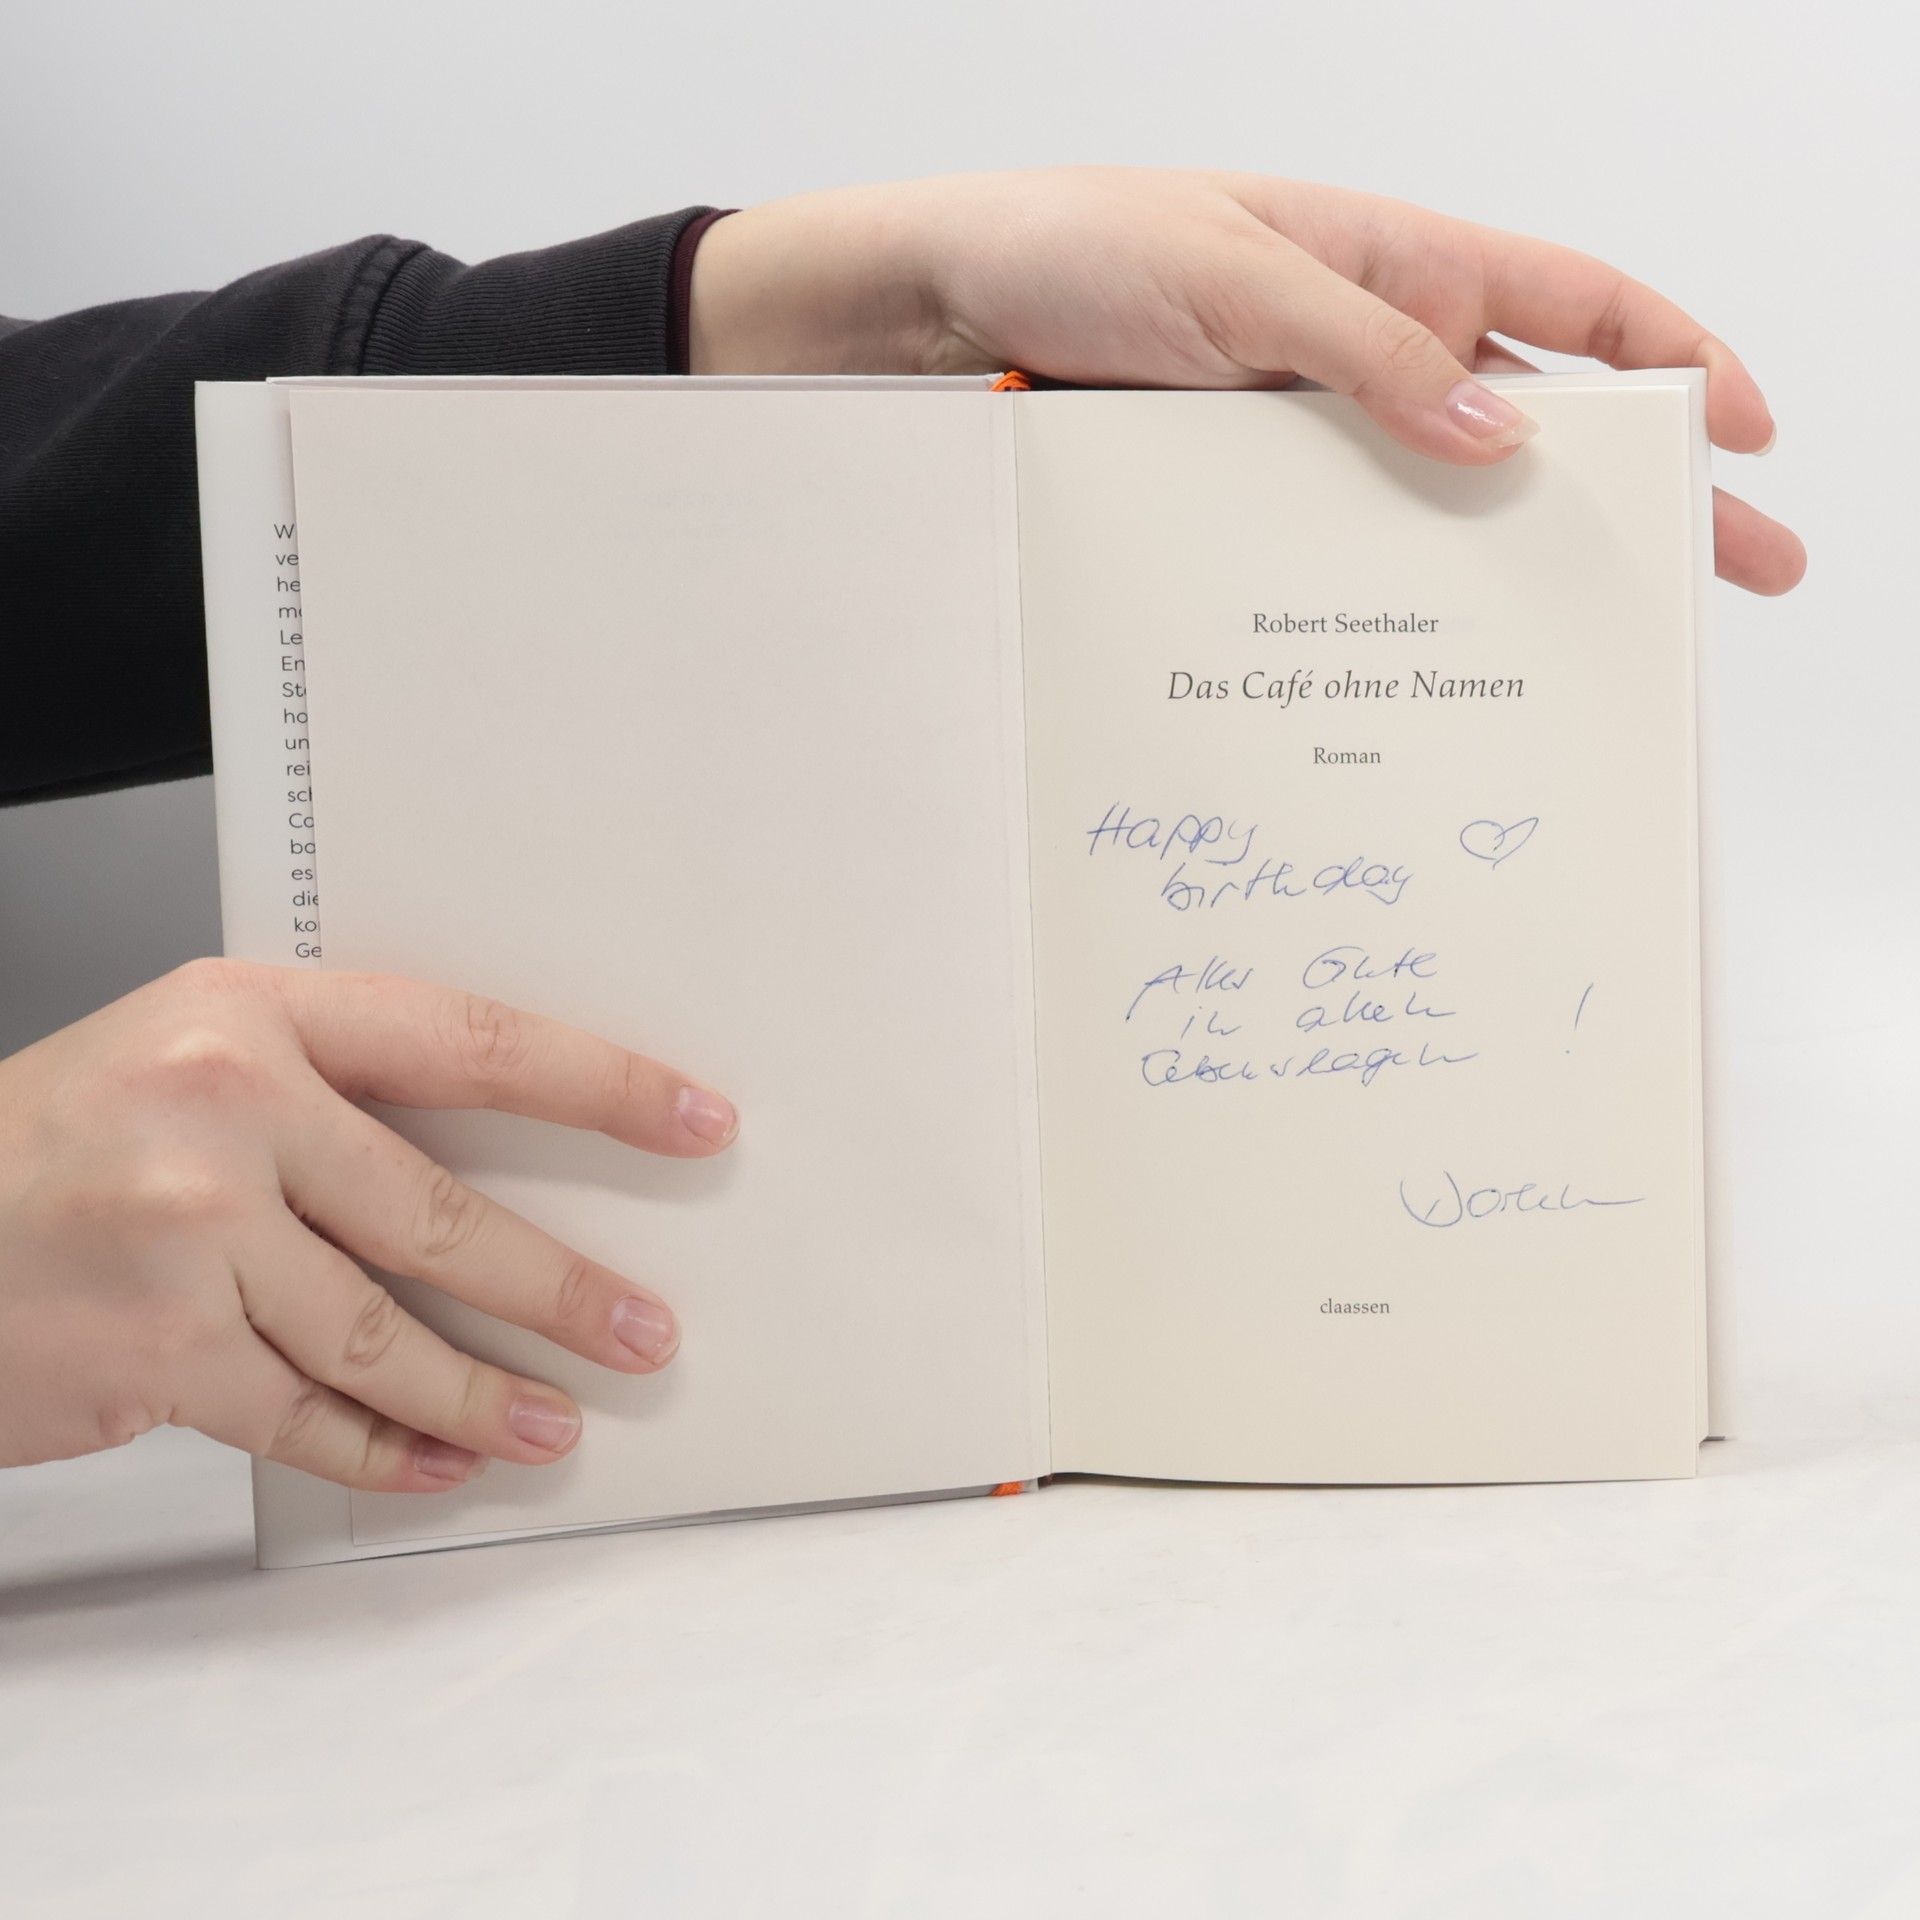 W
ve
he
Le
En
ho
un
rei
sch
Co
bo
es
die
ko
Ge
Robert Seethaler
Das Café ohne Namen
Roman
Happy ♡
birthday
Alles Gute
in allen
Lebenslagen !
claassen